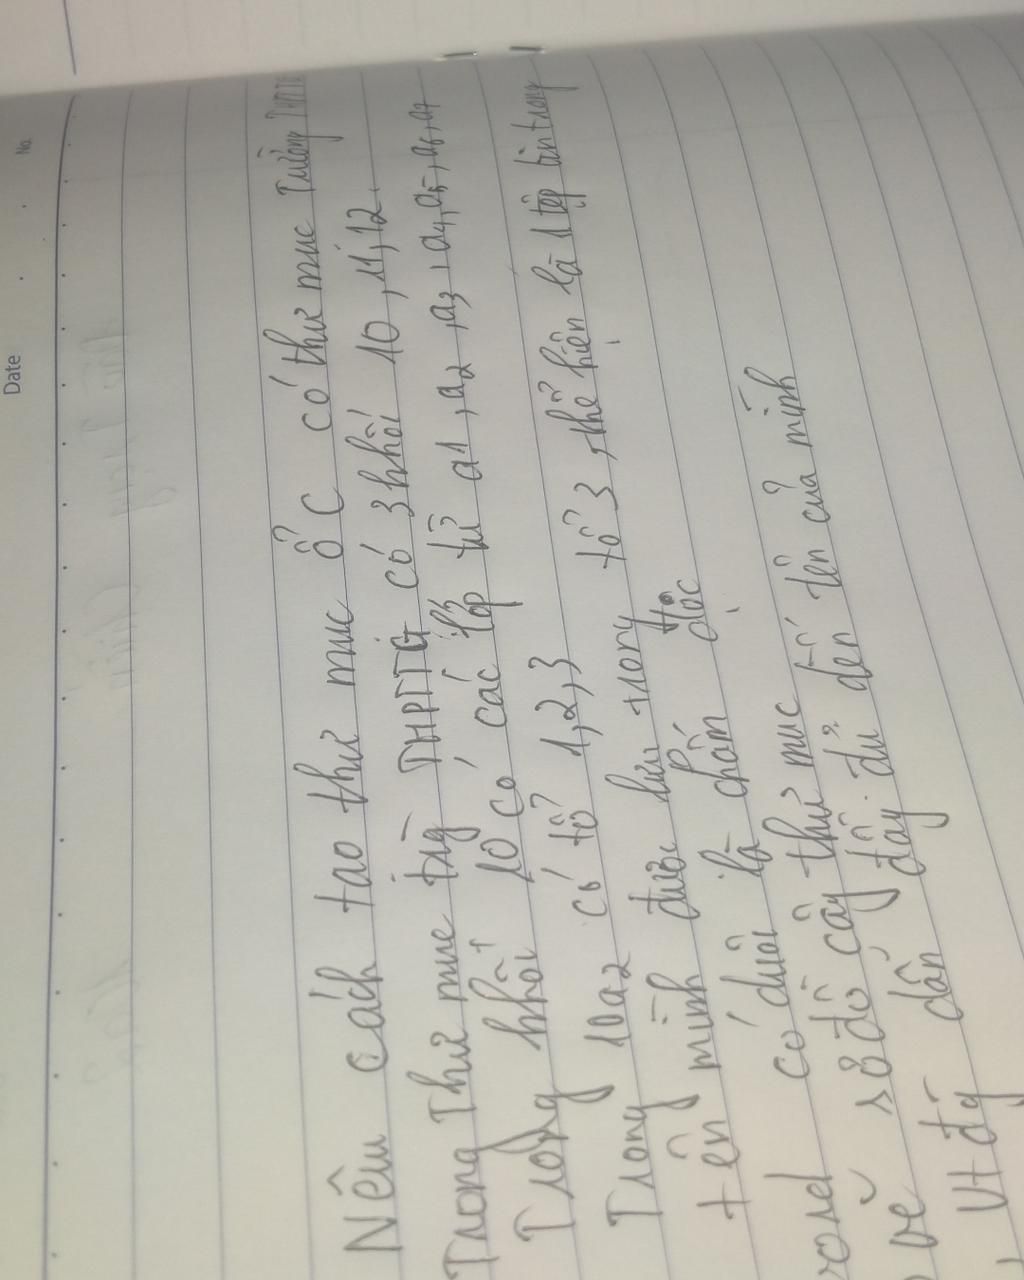 Date
No.
Nêu cách tao thư muc ổ C có thư muc Trường THPTTG
Trong Thư muc trg THPTTG có 3 khối 10, 11, 12.
Trong khối 10 có các lớp từ a1, a2, a3, a4, a5, a6, a7
Trong 10a2 có tổ 1,2,3
tên mình được lưu trong tổ 3, thể hiện là 1 tệp tin trong
word có đuôi là chấm đọc
vẽ sơ đồ cây thư mục
Vt đg dẫn đầy đủ đến tên của mình